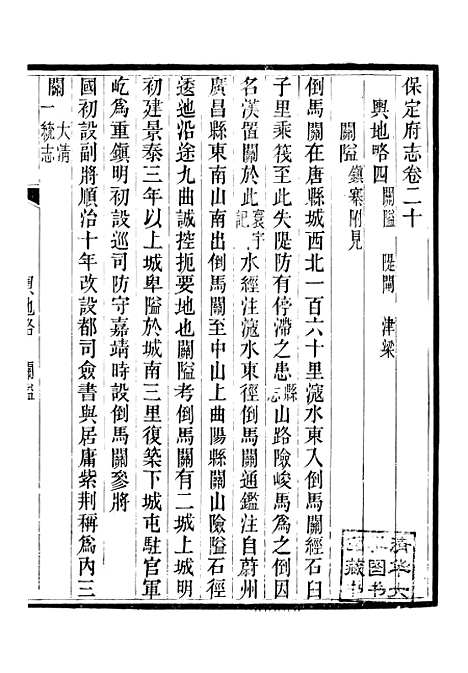 保定府志卷二十
輿地略四 關隘 隄閘 津梁
關隘 鎮寨附見
倒馬關在唐縣城西北一百六十里滱水東入倒馬關經石臼
子里乘筏至此失隄防有停滯之患 縣志 山路險峻馬為之倒因
名漢置關於此 寰宇記 水經注滱水東徑倒馬關通鑑注自蔚州
廣昌縣東南山南出倒馬關至中山上曲陽縣關山險隘石徑
逶迤沿途九曲誠控扼要地也關隘考倒馬關有二城上城明
初建景泰三年以上城卑隘於城南三里復築下城屯駐官軍
屹為重鎮明初設巡司防守嘉靖時設倒馬關參將
國初設副將順治十年改設都司僉書與居庸紫荆稱為內三
關 大清一統志
輿地略 關隘